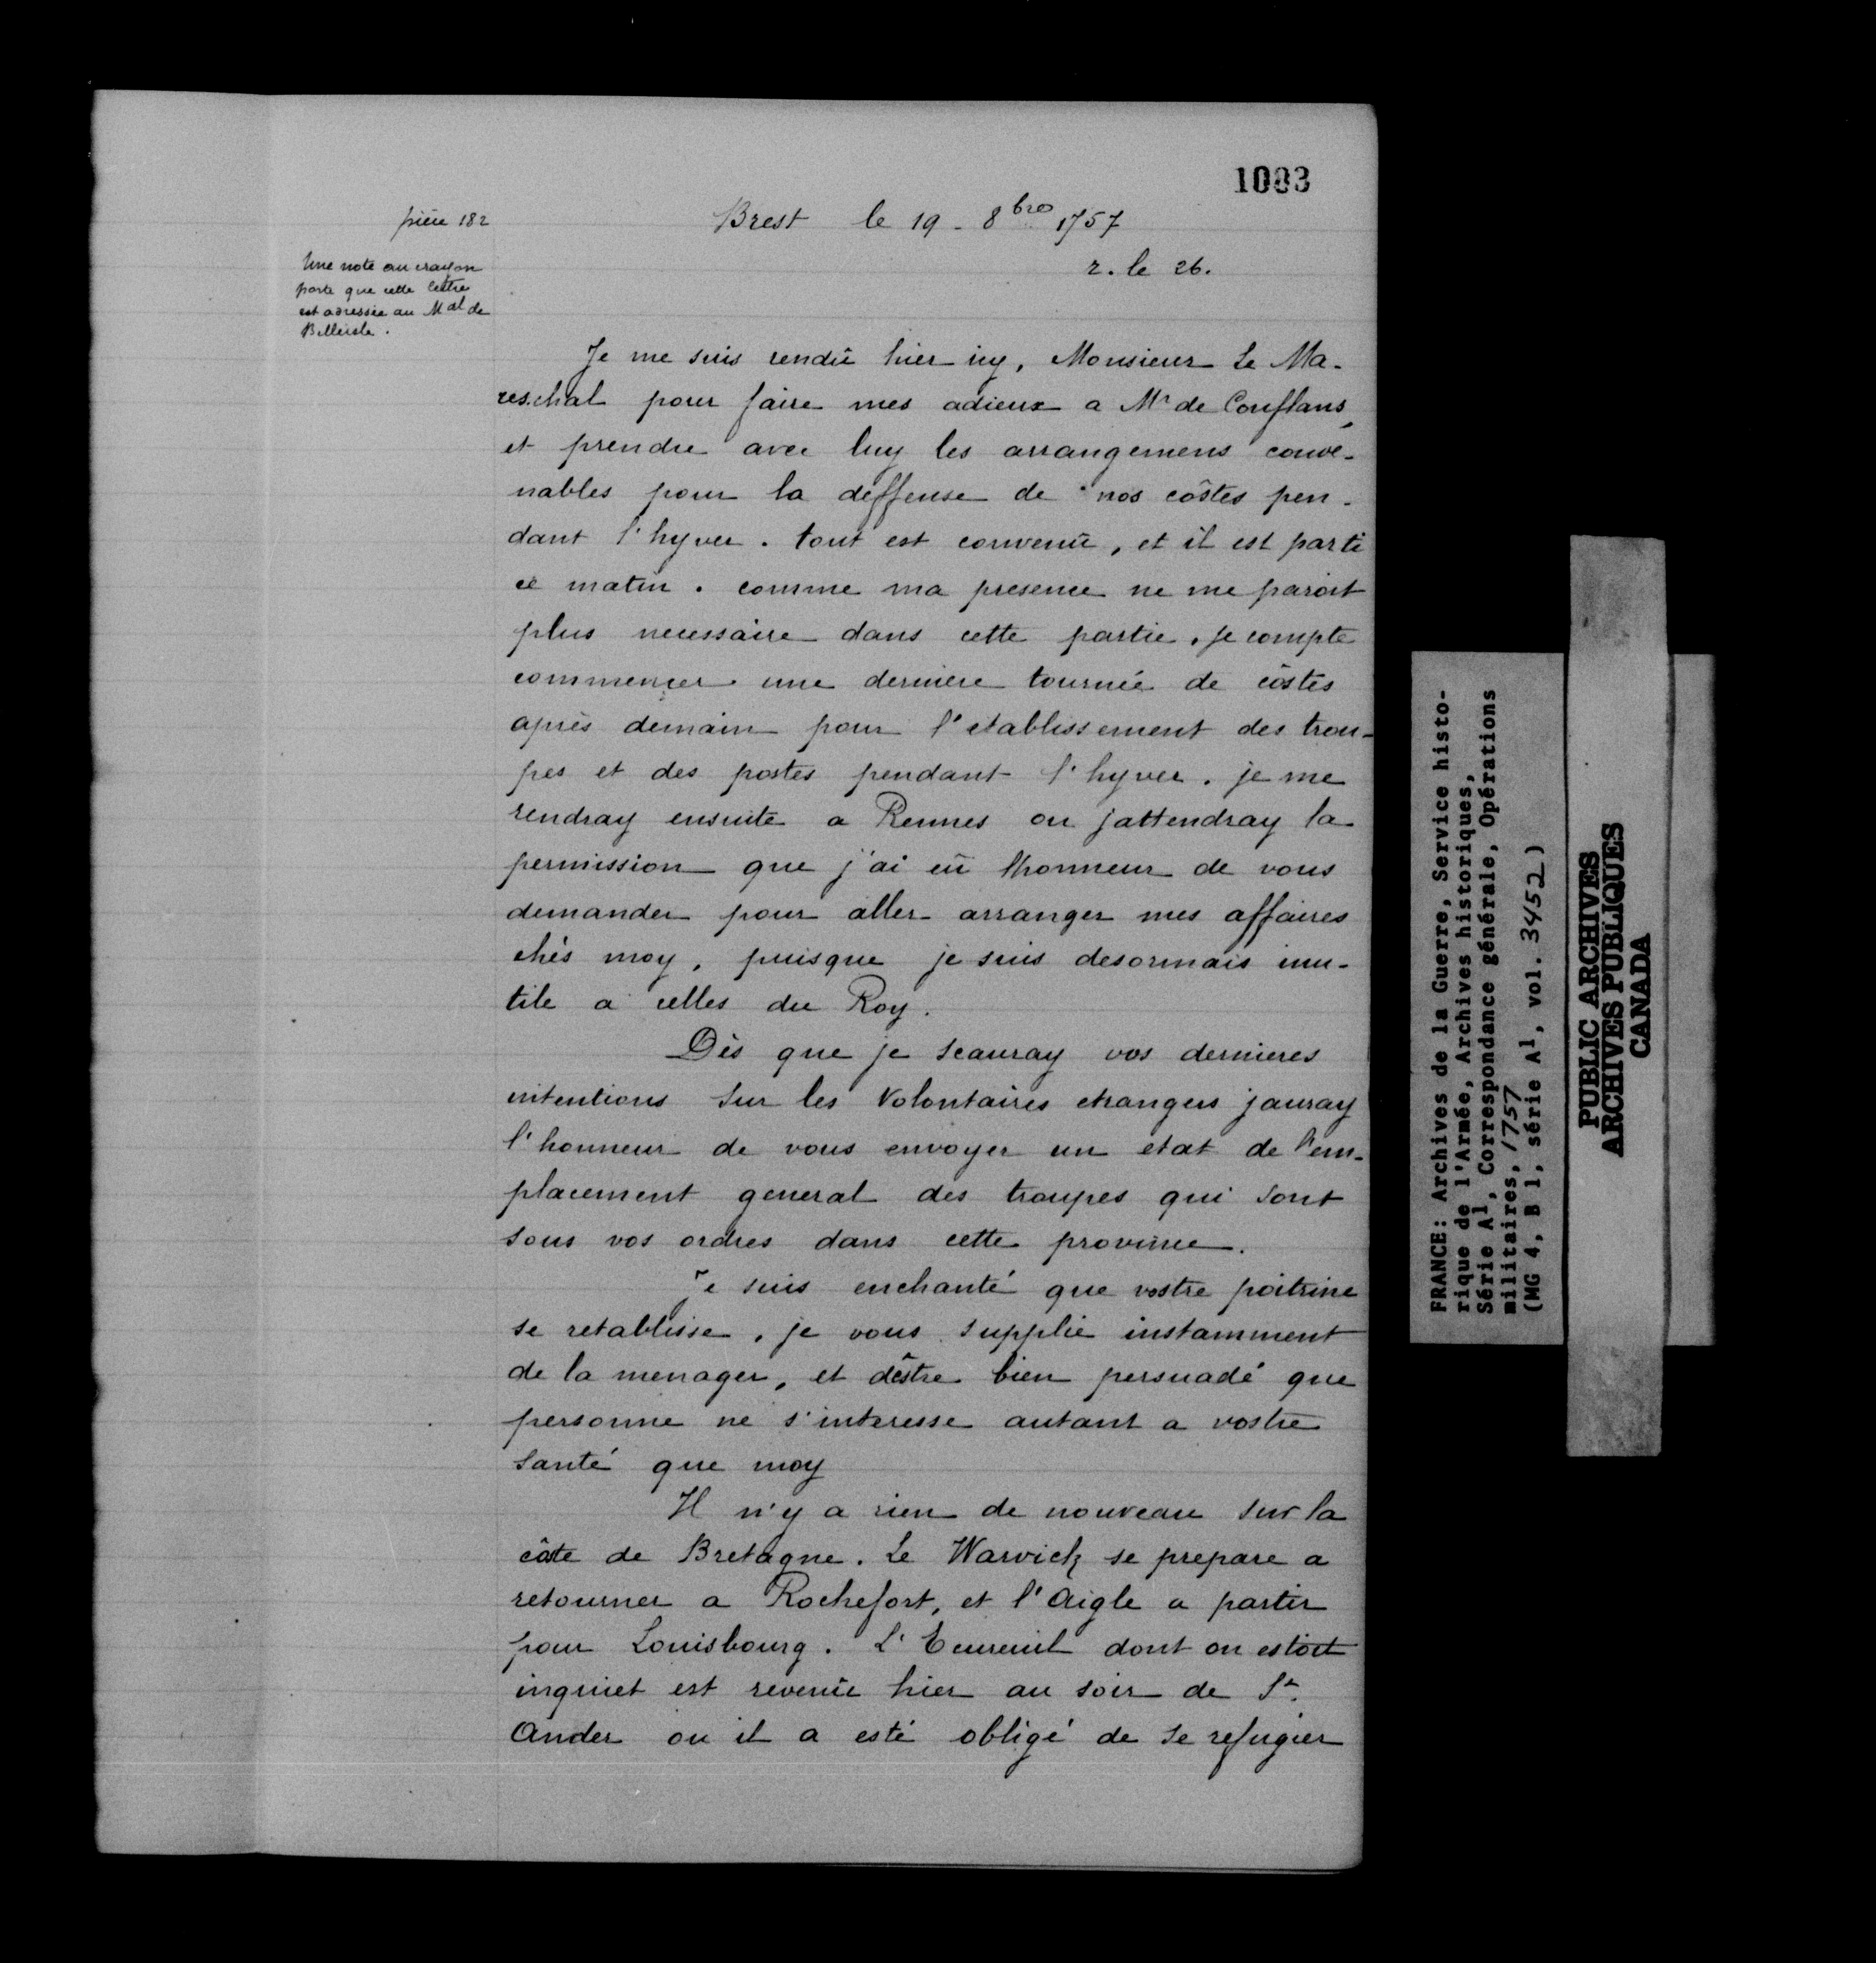 1003
pièce 182
Brest le 19 - 8bre 1757
r. le 26.
Une note au crayon
porte que cette lettre
est adressée au Mal de
Belleisle.
Je me suis rendû hier icy, Monsieur Le Ma-
reschal pour faire mes adieux a Mr de Conflans,
et prendre avec luy les arrangemens conve-
nables pour la deffense de nos côstes pen-
dant l'hyver. tout est convenû, et il est parti
ce matin. comme ma presence ne me paroit
plus necessaire dans cette partie, je compte
commencer une derniere tournée de côstes
après demain pour l'etablissement des trou-
pes et des postes pendant l'hyver. je me
rendray ensuite a Rennes ou jattendray la
permission que j'ai eû lhonneur de vous
demander pour aller arranger mes affaires
chés moy, puisque je suis desormais inu-
tile a celles du Roy.
Dès que je scauray vos dernieres
intentions sur les Volontaires etrangers jauray
l'honneur de vous envoyer un état de l'em-
placement general des troupes qui sont
sous vos ordres dans cette province.
Je suis enchanté que vostre poitrine
se retablisse, je vous supplie instamment
de la menager, et dêstre bien persuadé que
personne ne s'interesse autant a vostre
santé que moy
Il n'y a rien de nouveau sur la
côte de Bretagne. Le Warvick se prepare a
retourner a Rochefort, et l'Aigle a partir
pour Louisbourg. L'Ecureuil dont on estoit
inquiet est revenû hier au soir de St.
Ander ou il a esté obligé de se refugier
FRANCE: Archives de la Guerre, Service histo-
rique de l'Armée, Archives historiques,
Série A1, Correspondance générale, Opérations
militaires, 1757
(MG 4, B 1, série A1, vol. 3452)
PUBLIC ARCHIVES
ARCHIVES PUBLIQUES
CANADA